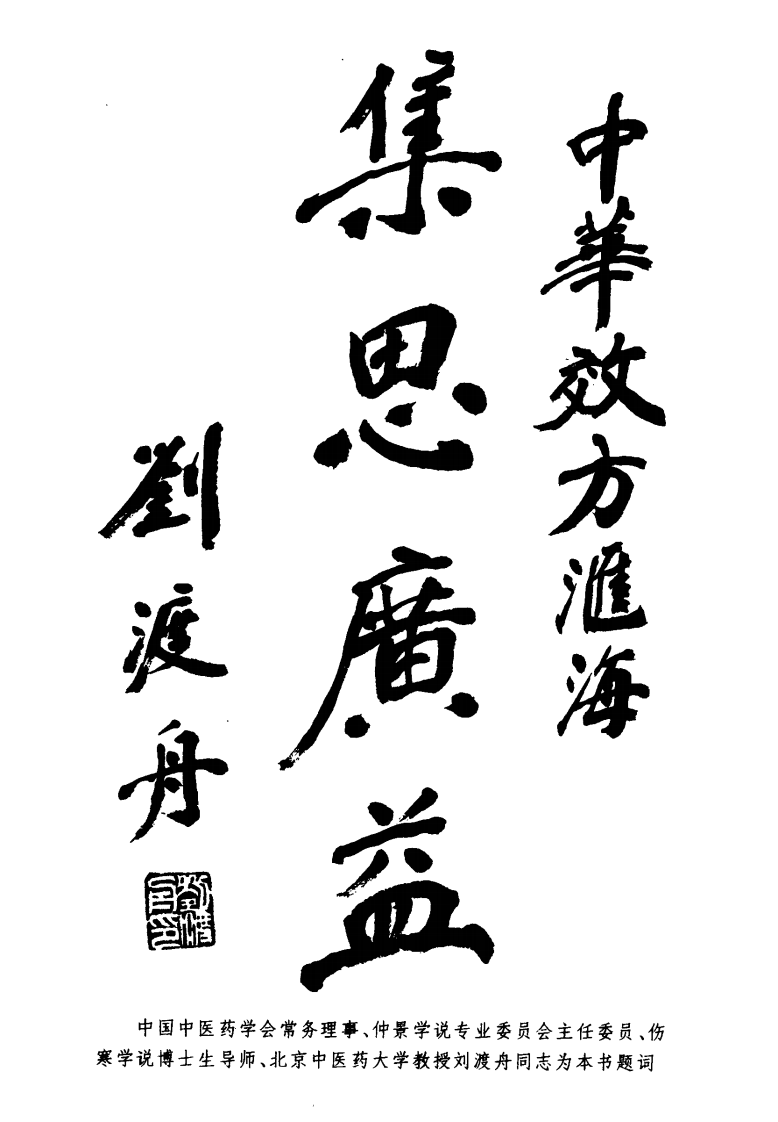 中華效方滙海
集思廣益
劉渡舟
中国中医药学会常务理事、仲景学说专业委员会主任委员、伤
寒学说博士生导师、北京中医药大学教授刘渡舟同志为本书题词